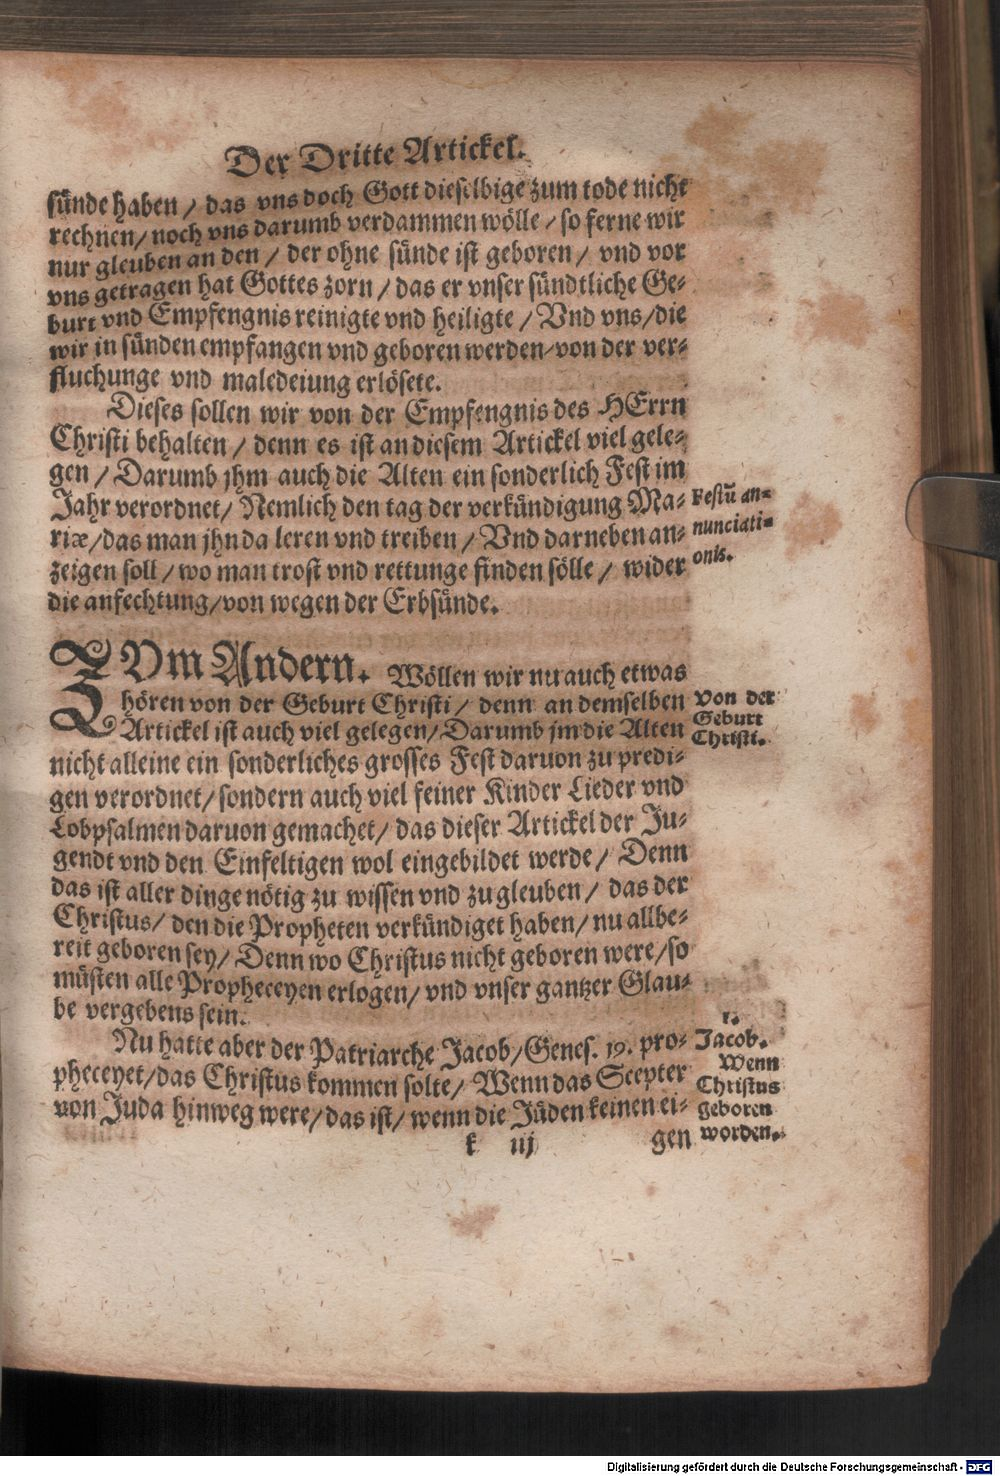 Der Dritte Artickel.
sünde haben / das vns doch Gott dieselbige zum tode nicht
rechnen / noch vns darumb verdammen wölle / so ferne wir
nur gleuben an den / der ohne sünde ist geboren / vnd vor
vns getragen hat Gottes zorn / das er vnser sündtliche Ge-
burt vnd Empfengnis reinigte vnd heiligte / Vnd vns / die
wir in sünden empfangen vnd geboren werden / von der ver-
fluchunge vnd maledeiung erlösete.
Dieses sollen wir von der Empfengnis des HErrn
Christi behalten / denn es ist an diesem Artickel viel gele-
gen / Darumb jhm auch die Alten ein sonderlich Fest im
Jahr verordnet / Nemlich den tag der verkündigung Ma-
riæ / das man jhn da leren vnd treiben / Vnd darneben an-
zeigen soll / wo man trost vnd rettunge finden sölle / wider
die anfechtung / von wegen der Erbsünde.
Festũ an-
nunciati-
onis.
ZVm Andern. Wöllen wir nu auch etwas
hören von der Geburt Christi / denn an demselben
Artickel ist auch viel gelegen / Darumb jm die Alten
nicht alleine ein sonderliches grosses Fest daruon zu predi-
gen verordnet / sondern auch viel feiner Kinder Lieder vnd
Lobpsalmen daruon gemachet / das dieser Artickel der Ju-
gendt vnd den Einfeltigen wol eingebildet werde / Denn
das ist aller dinge nötig zu wissen vnd zu gleuben / das der
Christus / den die Propheten verkündiget haben / nu allbe-
reit geboren sey / Denn wo Christus nicht geboren were / so
müsten alle Propheceyen erlogen / vnd vnser gantzer Glau-
be vergebens sein.
Von der
Geburt
Christi.
Nu hatte aber der Patriarche Jacob / Genes. 19. pro-
pheceyet / das Christus kommen solte / Wenn das Scepter
von Juda hinweg were / das ist / wenn die Jüden keinen ei-
1.
Jacob.
Wenn
Christus
geboren
worden.
k iij
gen
Digitalisierung gefördert durch die Deutsche Forschungsgemeinschaft - DFG